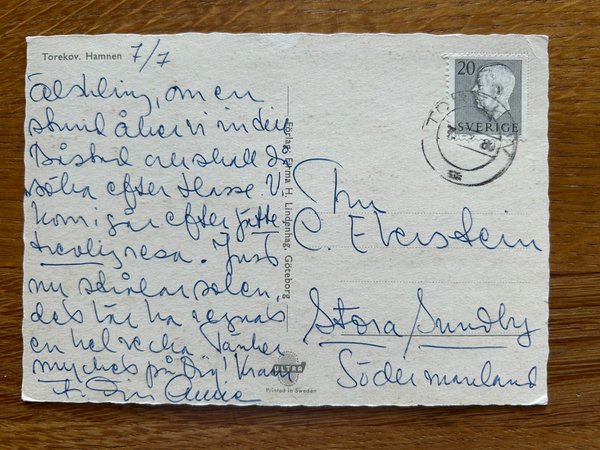 Torekov. Hamnen
7/7
Älskling, om en
stund åker vi in till
Båstad och skall då
söka efter Hasse V.
kom i går efter jätte
trevlig resa. Just
nu strålar solen,
det lär ha regnat
en hel vecka. Tänker
mycket på Dig! Kram
fr. Din Annie
Förlag: Firma H. Lindenhag, Göteborg
ULTRA
Printed in Sweden
20
SVERIGE
Fru
C. Eberstein
Stora Sundby
Södermanland